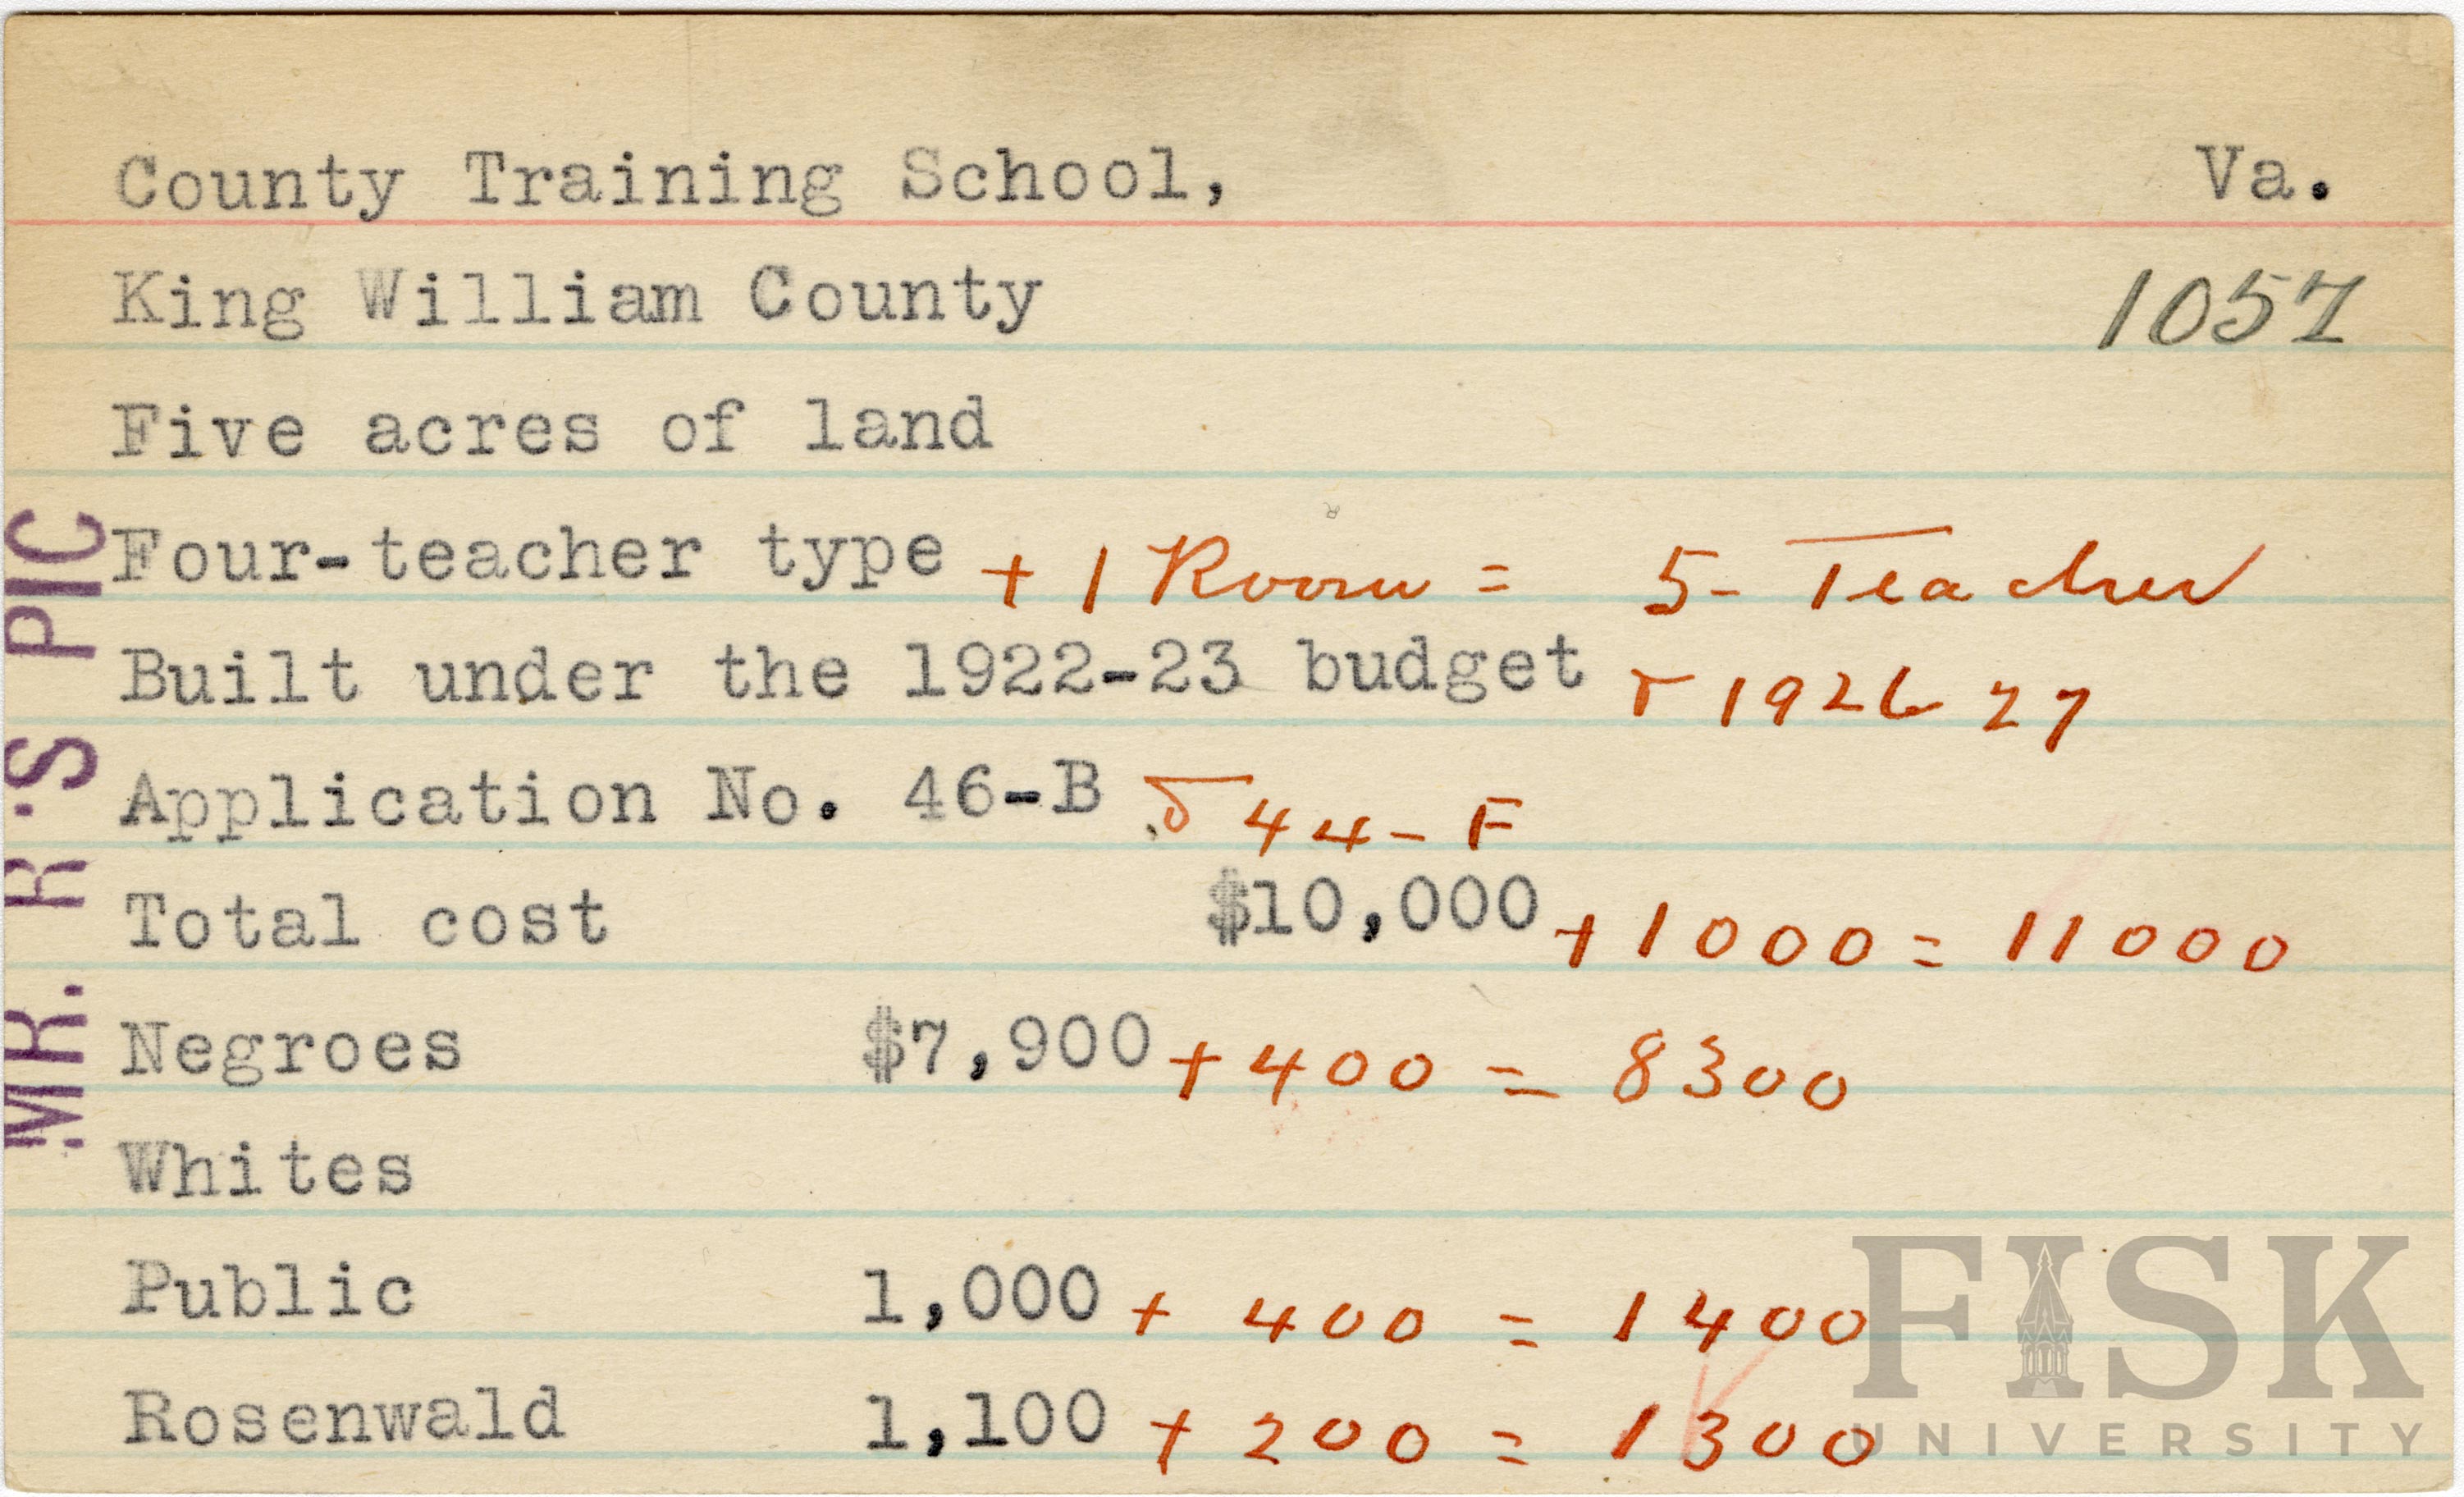 County Training School, Va.
King William County 1057
Five acres of land
Four-teacher type + 1 Room = 5- Teacher
Built under the 1922-23 budget & 1926 27
Application No. 46-B & 44-F
Total cost $10,000 + 1000 = 11000
Negroes $7,900 + 400 = 8300
Whites
Public 1,000 + 400 = 1400
Rosenwald 1,100 + 200 = 1300
MR. R·S PIC
FISK
UNIVERSITY